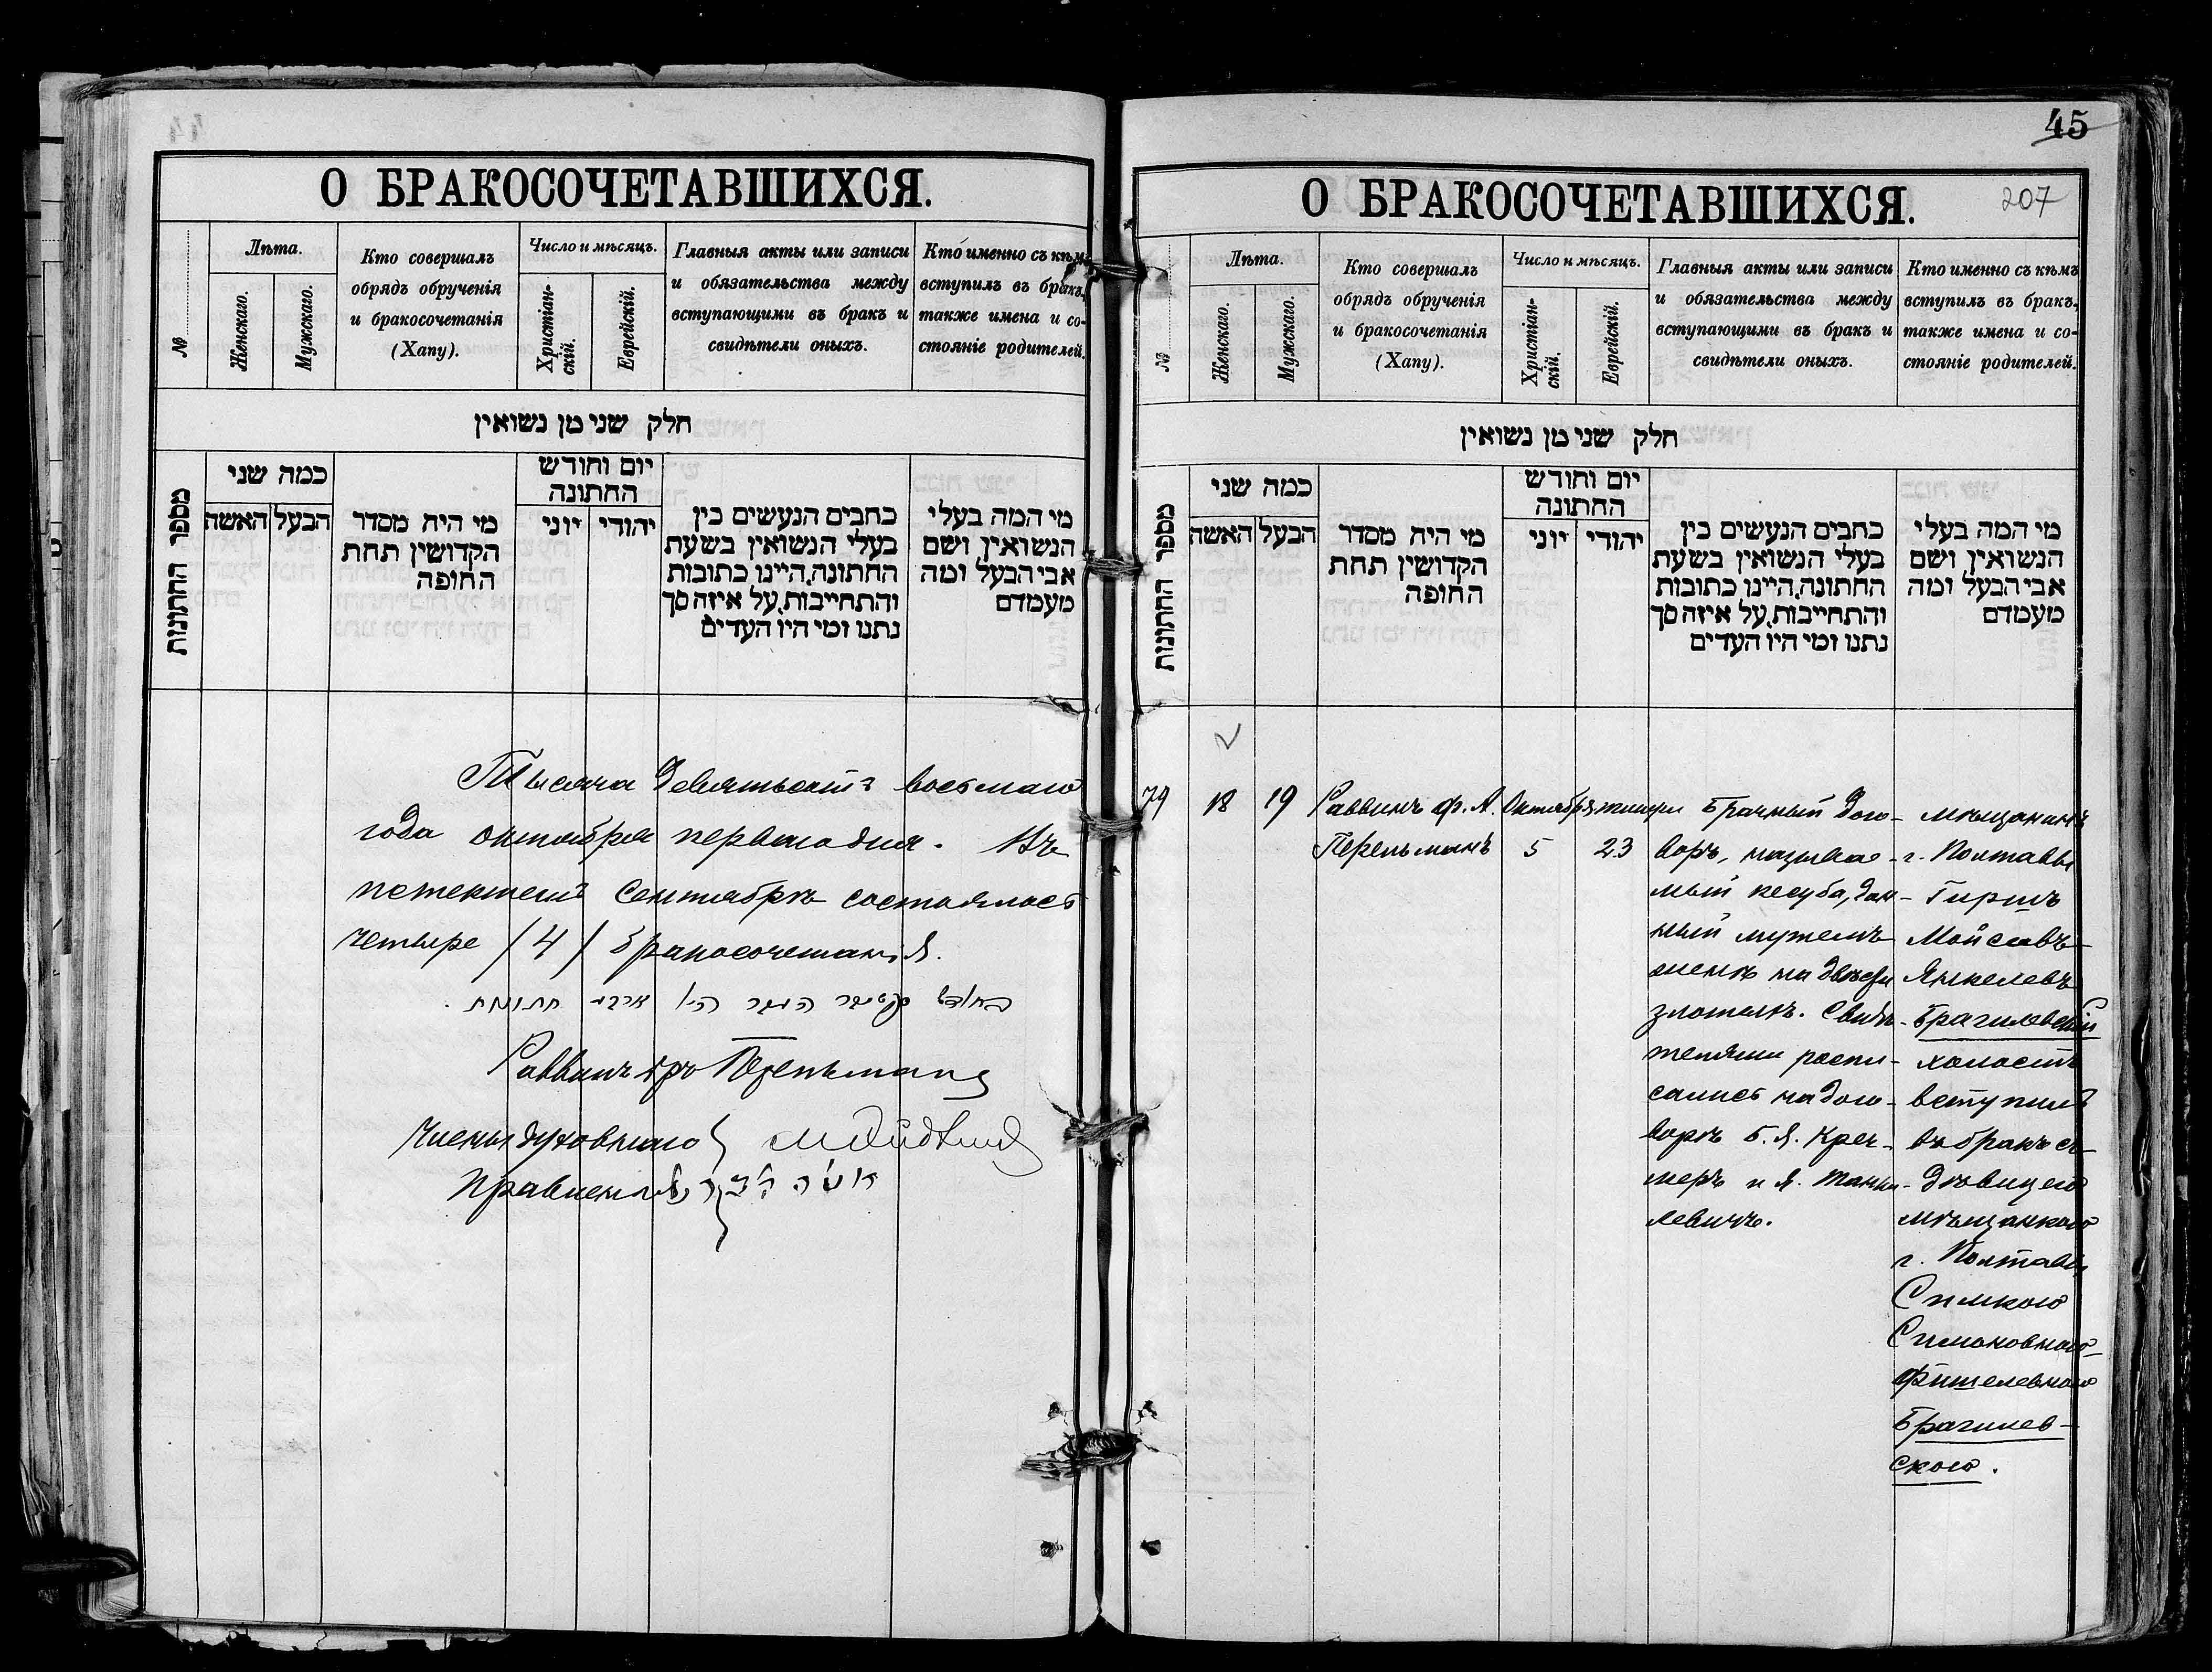 О БРАКОСОЧЕТАВШИХСЯ.
№
Лѣта.
Женскаго.
Мужскаго.
Кто совершалъ
обрядъ обрученія
и бракосочетанія
(Хапу).
Число и мѣсяцъ.
Христіан-
скій.
Еврейскій.
Главныя акты или записи
и обязательства между
вступающими въ бракъ и
свидѣтели оныхъ.
Кто именно съ кѣмъ
вступилъ въ бракъ,
также имена и со-
стояніе родителей.
חלק שני מן נשואין
מספר החתונות
כמה שני
הבעל האשה
מי היה מסדר
הקדושין תחת
החופה
יום וחודש
החתונה
יהודי יוני
כתבים הנעשים בין
בעלי הנשואין בשעת
החתונה, היינו כתובות
והתחייבות, על איזה סך
נתנו ומי היו העדים
מי המה בעלי
הנשואין, ושם
אבי הבעל ומה
מעמדם
Тысяча Девятьсотъ восьмаго
года октября перваго дня. Въ
истекшемъ сентябрѣ состоялось
четыре /4/ бракосочетанія.
ארבע חתונות.
Раввинъ Перельманъ
Члены духовнаго
Правленія
45
О БРАКОСОЧЕТАВШИХСЯ.
207
№
Лѣта.
Женскаго.
Мужскаго.
Кто совершалъ
обрядъ обрученія
и бракосочетанія
(Хапу).
Число и мѣсяцъ.
Христіан-
скій.
Еврейскій.
Главныя акты или записи
и обязательства между
вступающими въ бракъ и
свидѣтели оныхъ.
Кто именно съ кѣмъ
вступилъ въ бракъ,
также имена и со-
стояніе родителей.
חלק שני מן נשואין
מספר החתונות
כמה שני
הבעל האשה
מי היה מסדר
הקדושין תחת
החופה
יום וחודש
החתונה
יהודי יוני
כתבים הנעשים בין
בעלי הנשואין בשעת
החתונה, היינו כתובות
והתחייבות, על איזה סך
נתנו ומי היו העדים
מי המה בעלי
הנשואין, ושם
אבי הבעל ומה
מעמדם
79
18
19
Раввинъ Ф. А.
Перельманъ
Октября
5
тишри
23
Брачный дого-
воръ, называе-
мый кесуба, дан-
ный мужемъ
женѣ на двѣсти
злотыхъ. Свидѣ-
телями распи-
сались на дого-
ворѣ Б. Я. Крен-
меръ и Я. Танхи-
левичъ.
Мѣщанинъ
г. Полтавы
Гиршъ
Мойсеевъ-
Янкелевъ
Брагилевскій
холостъ
вступилъ
въ бракъ съ
дѣвицею
мѣщанкою
г. Полтавы
Симкою
Симоновною-
Фишелевною
Брагилев-
скою.